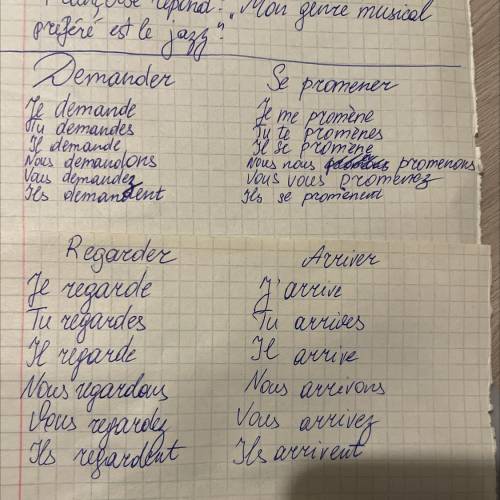 Françoise répond: "Mon genre musical
préféré est le jazz".
Demander
Je demande
Tu demandes
Il demande
Nous demandons
Vous demandez
Ils demandent
Se promener
Je me promène
Tu te promènes
Il se promène
Nous nous promenons
Vous vous promenez
Ils se promènent
Regarder
Je regarde
Tu regardes
Il regarde
Nous regardons
Vous regardez
Ils regardent
Arriver
J'arrive
Tu arrives
Il arrive
Nous arrivons
Vous arrivez
Ils arrivent